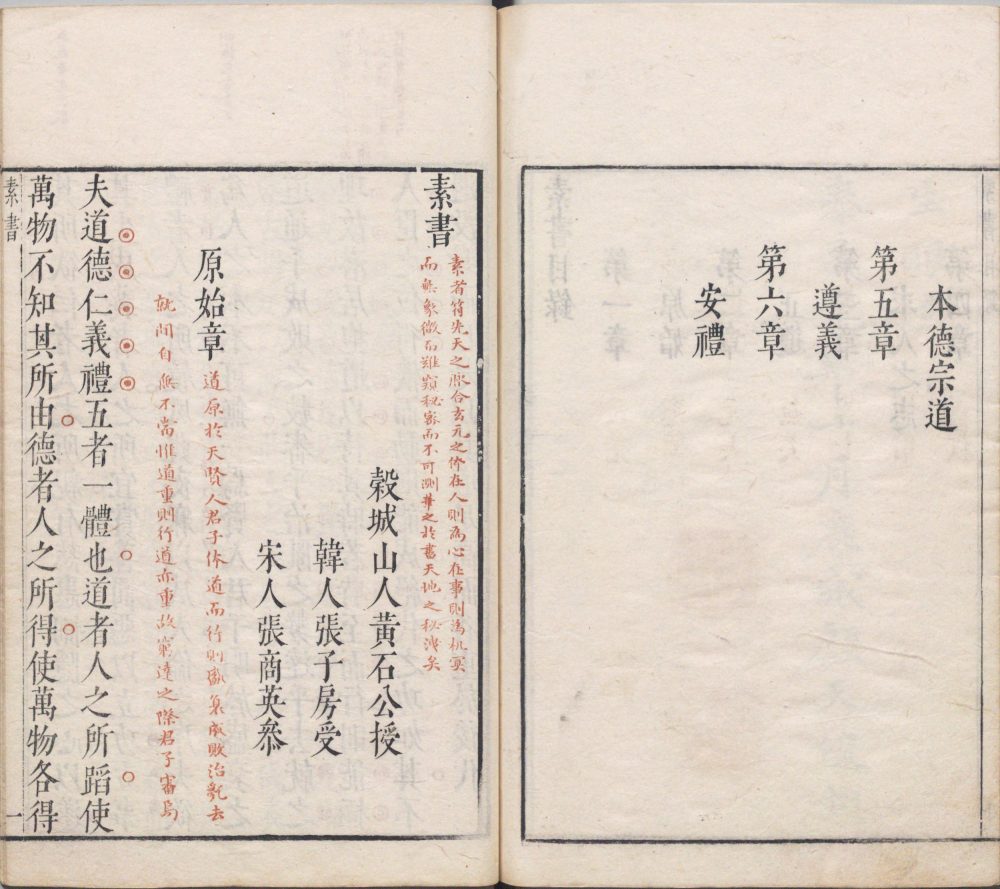 本德宗道
第五章
遵義
第六章
安禮
素書
素者符先天之脈合玄元之体在人則為心在事則為机冥
而無象微而難窺秘密而不可測筆之於書天地之秘洩矣
穀城山人黃石公授
韓人張子房受
宋人張商英叅
原始章
道原於天賢人君子体道而行則盛衰成敗治亂去
就間自無不當惟道重則行道亦重故窮達之際君子審焉
夫道德仁義禮五者一體也道者人之所蹈使
萬物不知其所由德者人之所得使萬物各得
素書
一